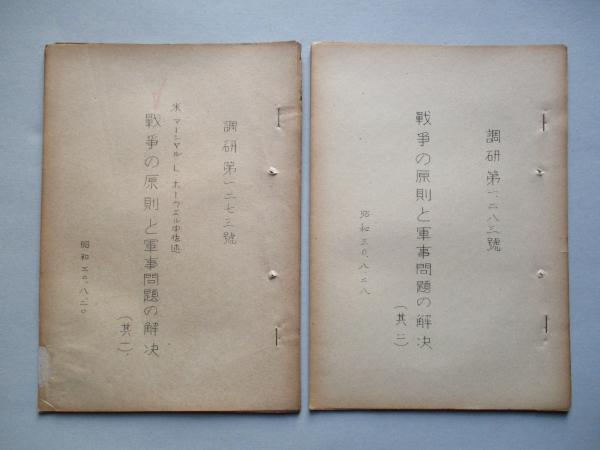 調研第一二七三號
米 マーシャル L ホーウエル中佐述
戰爭の原則と軍事問題の解決
（其一）
昭和三〇.八.二〇
調研第一、二八三號
戰爭の原則と軍事問題の解決
（其二）
昭和三〇.八.二八